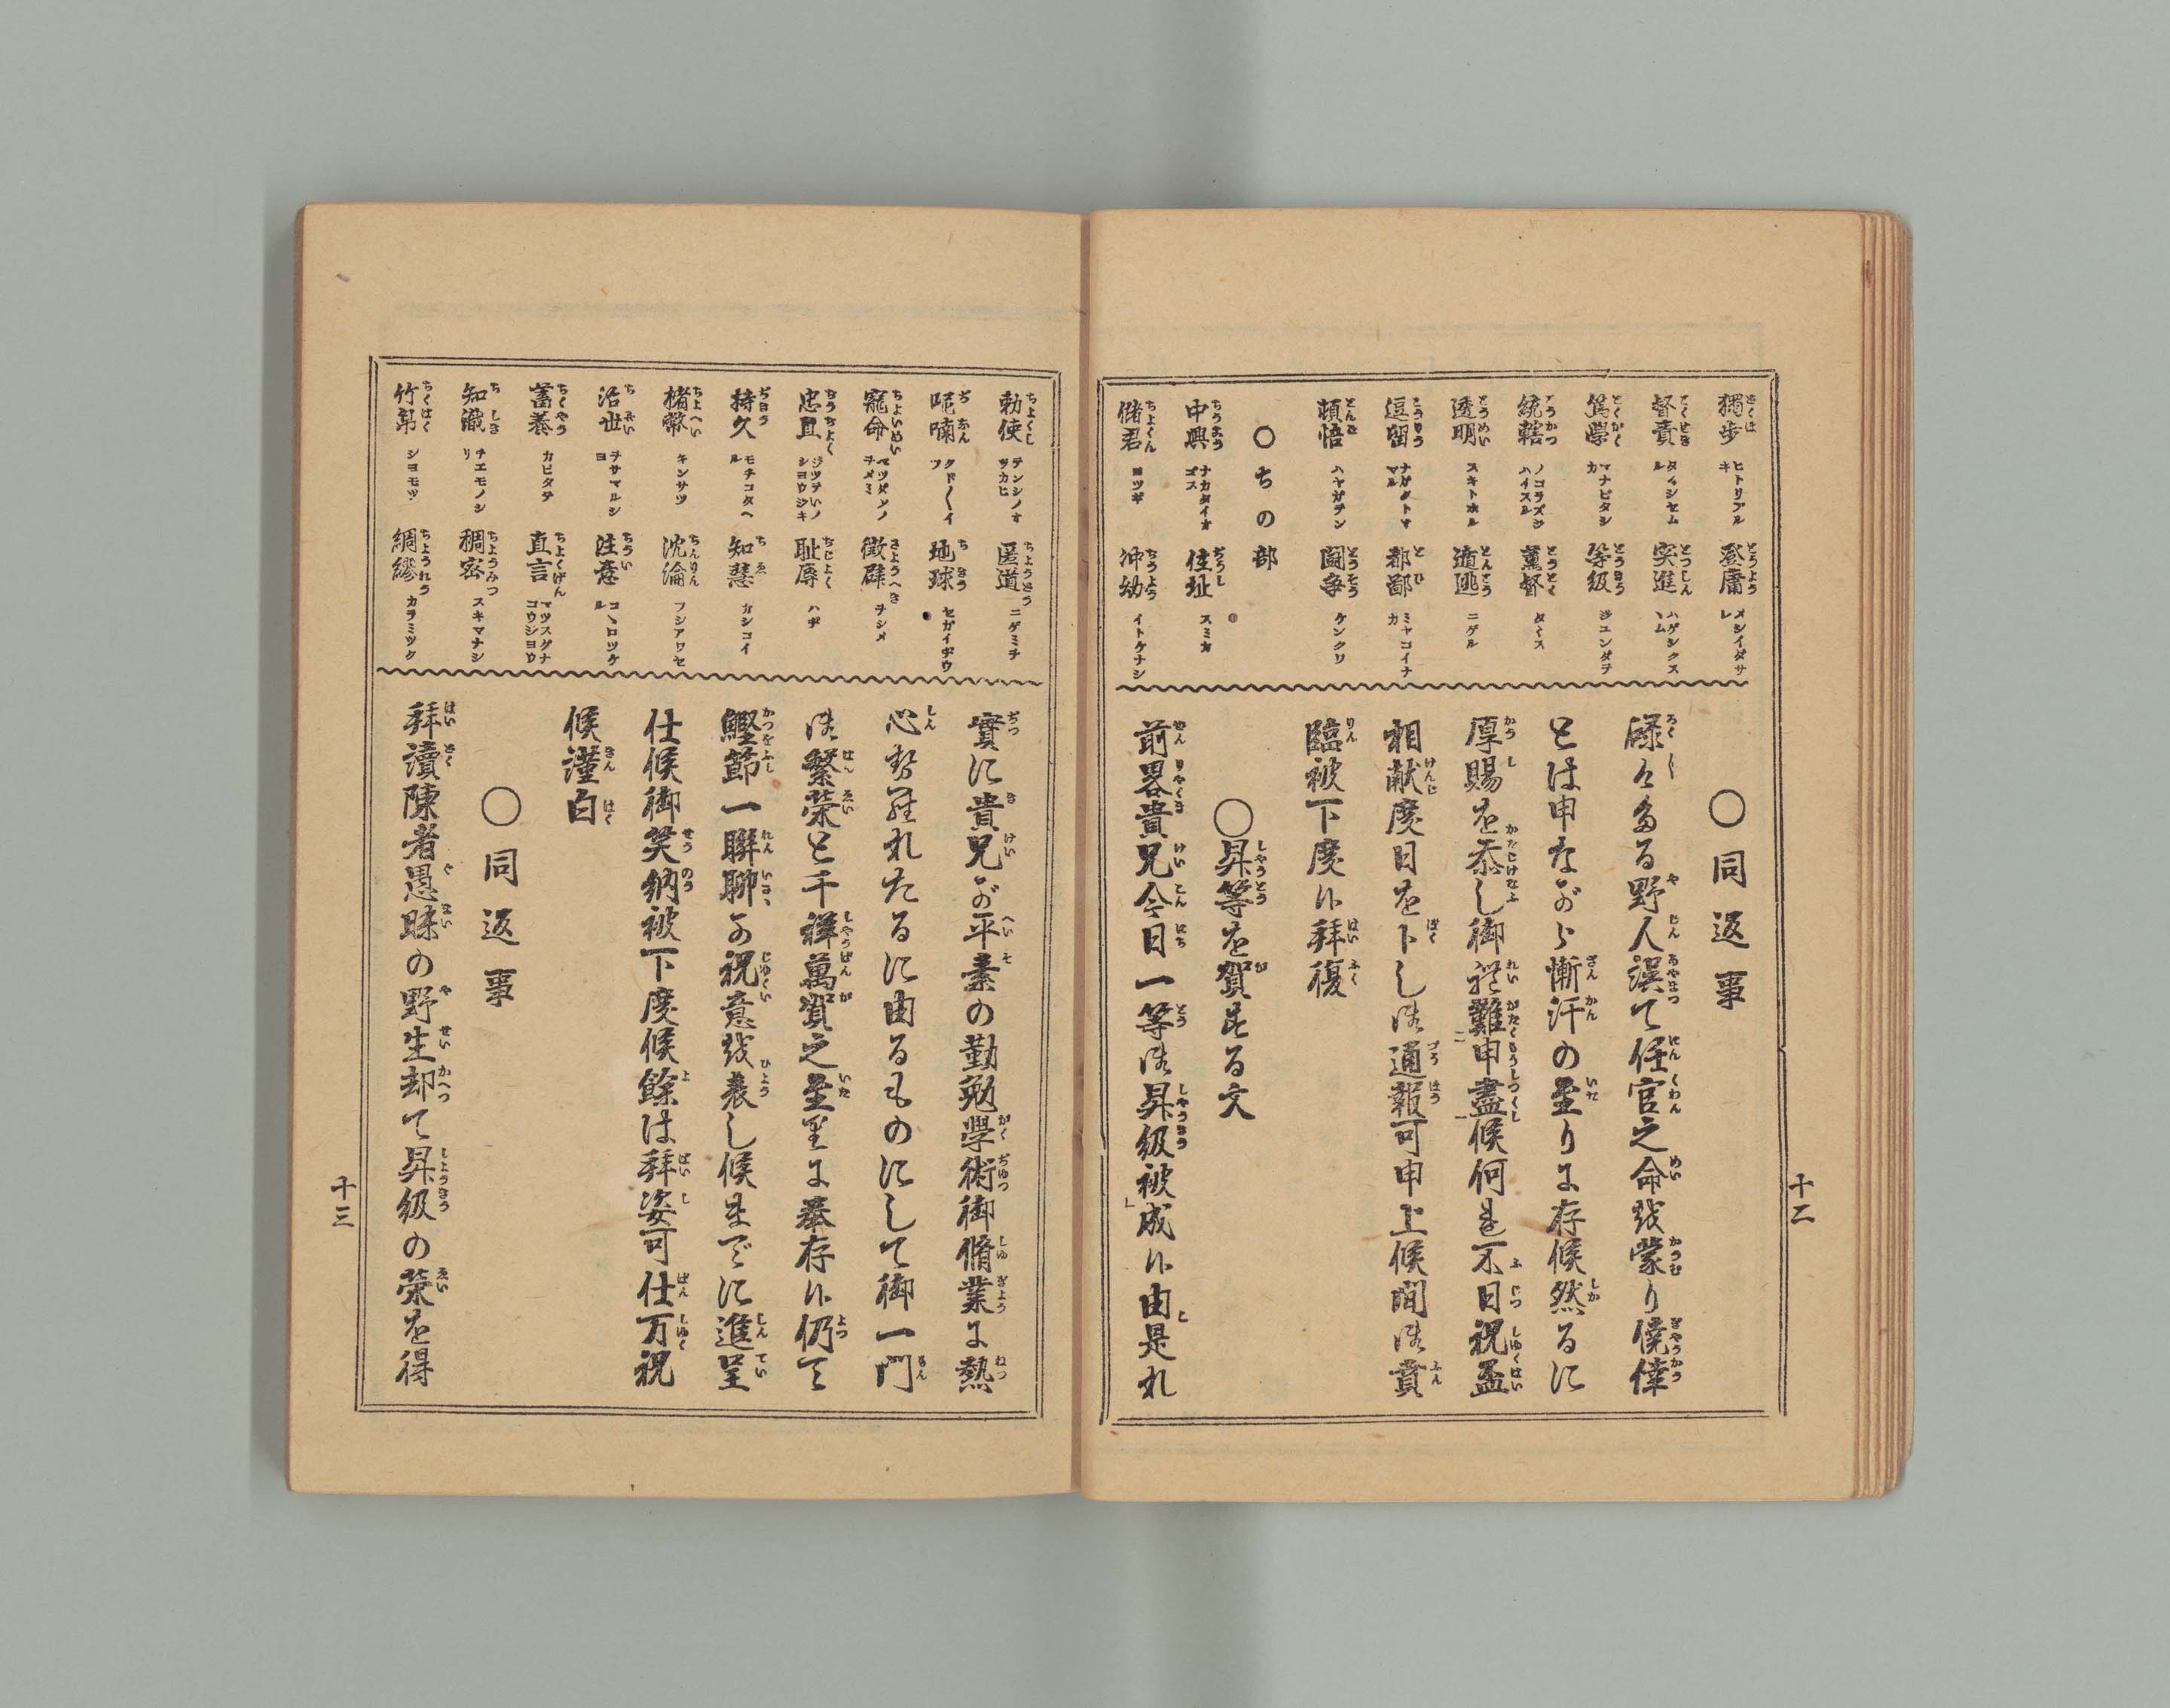 獨歩 ヒトリアルキ
登庸 メシイダサレ
督責 タヾシセムル
突進 ハゲシクスヽム
篤學 マナビタシカ
等級 ジユンダテ
統轄 ノコラズシハイスル
薫督 タヾス
透明 スキトホル
遁逃 ニゲル
逗留 ナガクトマル
都鄙 ミヤコイナカ
頓悟 ハヤガテン
闘争 ケンクワ
○ちの部
中興 ナカタイオコス
住址 スミカ
儲君 ヨツギ
冲幼 イトケナシ
○同返事
碌々たる野人誤て任官之命越蒙り僥倖
とは申ながら慚汗の至りに存候然るに
厚賜を忝し御礼難申盡候何れ不日祝盃
相献度日を卜し御通報可申上候間御賁
臨被下度候拝復
○昇等を賀する文
前畧貴兄今日一等御昇級被成候由是れ
十二
勅使 テンシノオツカヒ
匿道 ニゲミチ
呢喃 クド〱イフ
地球 セカイヂウ
寵命 マツダメノヲメミ
徴辟 チシメ
忠直 ジツテイノシヨウジキ
耻辱 ハヂ
持久 モチコタヘル
知慧 カシコイ
楮幣 キンサツ
沈淪 フシアワセ
治世 ヲサマルシヨ
注意 コヽロツケル
蓄養 カヒタテ
直言 マツスグナコウジヨウ
知識 チエモノシリ
稠密 スキマナシ
竹帛 シヨモツ
綢繆 カラミツク
實に貴兄が平素の勤勉學術御脩業に熱
心被為在れたるに由るものにして御一門
御繁榮と千祥萬賀之至里に奉存候仍て
鰹節一聯聊か祝意越表し候までに進呈
仕候御笑納被下度候餘は拝姿可仕万祝
候謹白
○同返事
拝讀陳者愚昧の野生却て昇級の榮を得
十三